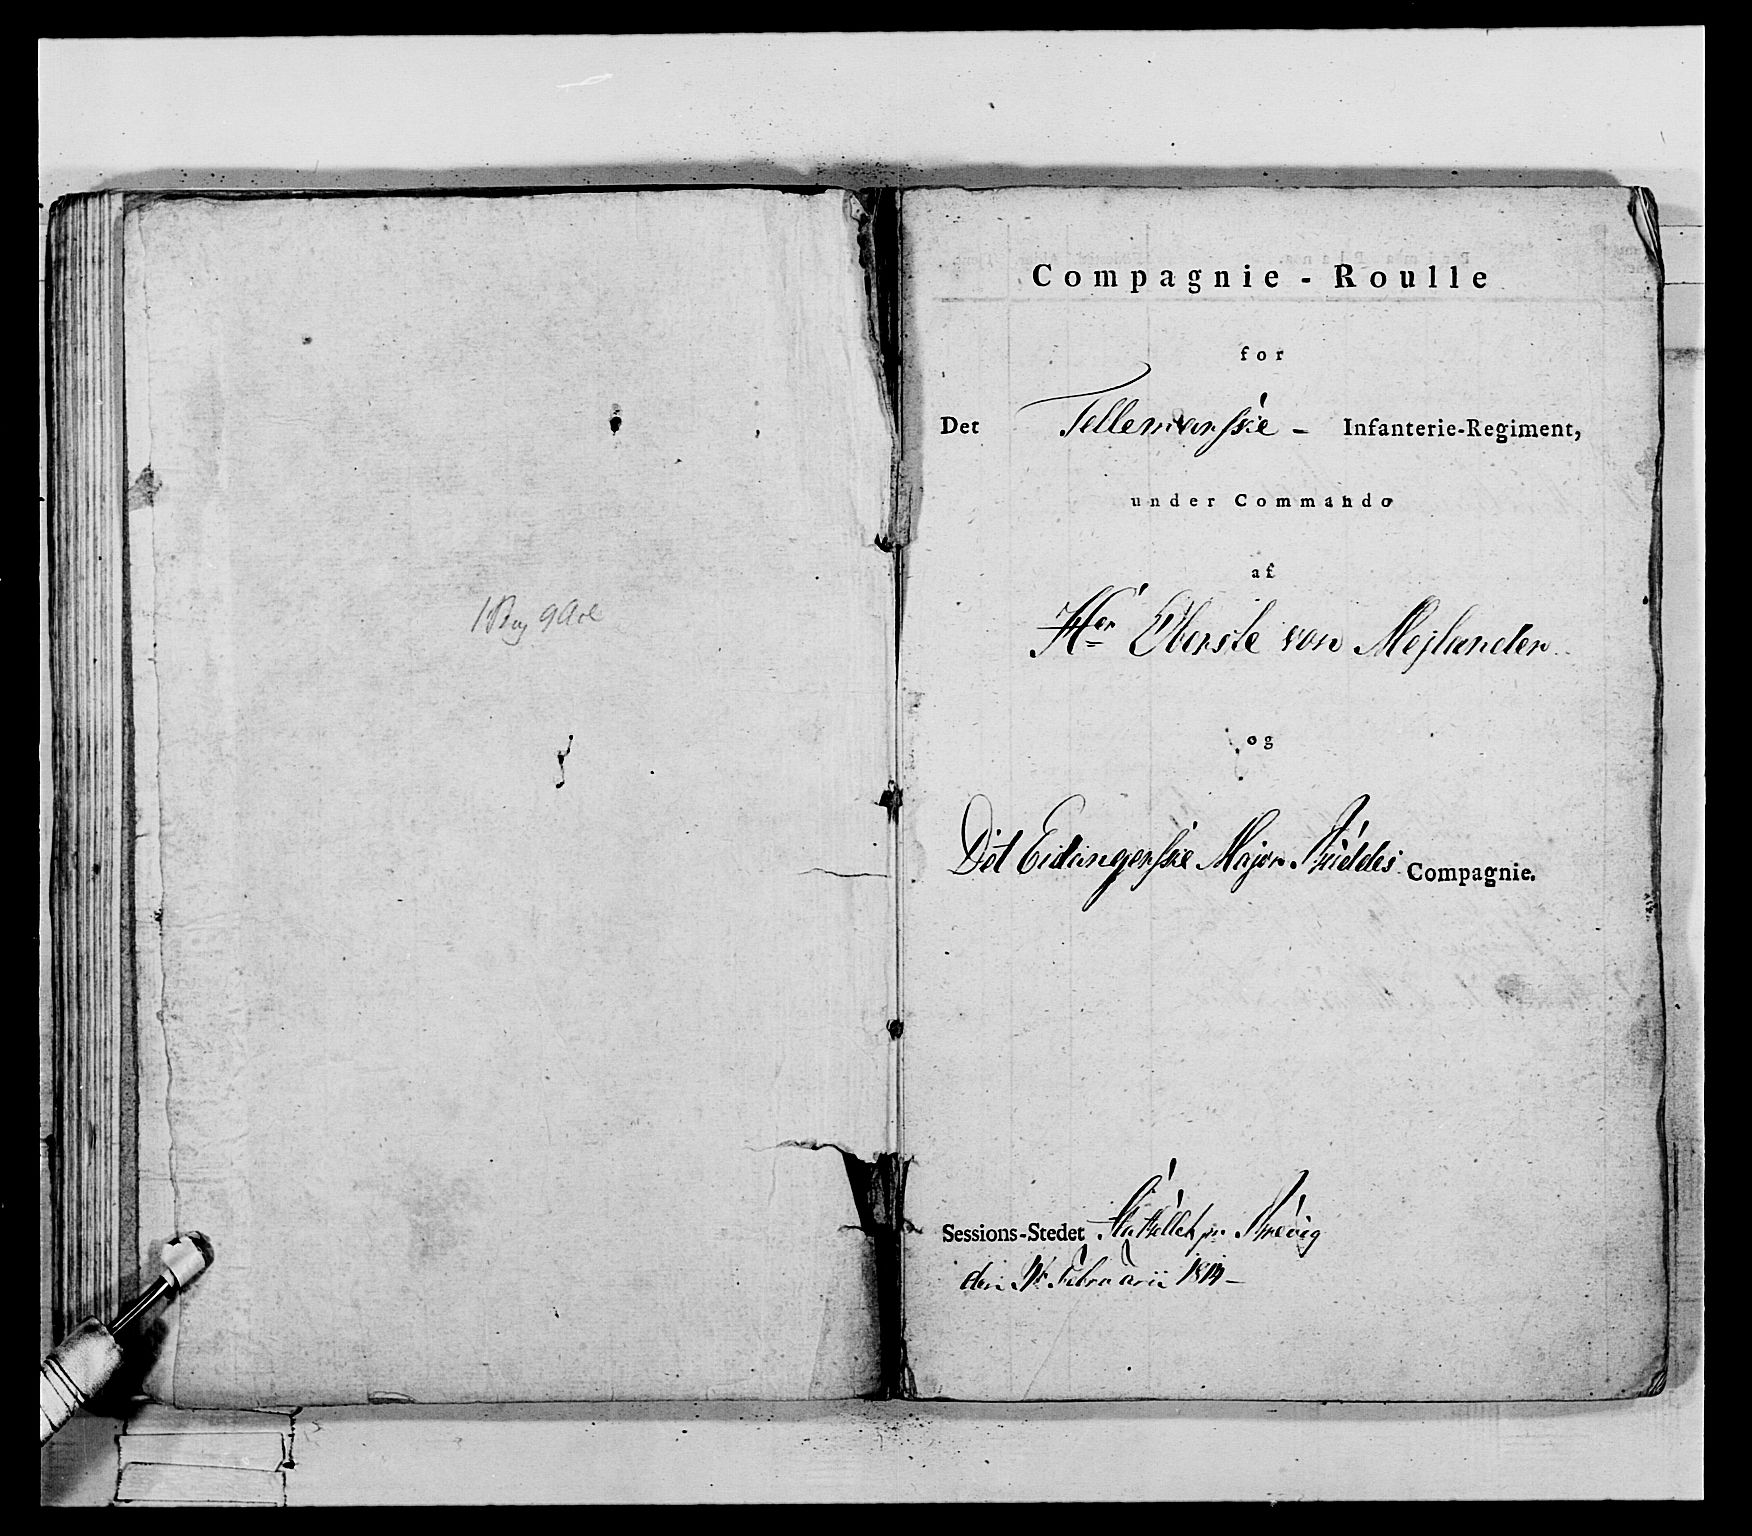 Compagnie - Roulle
for
Det Tellemarkske - Infanterie-Regiment,
under Commando
af
Her Oberste von Mejlænder
og
Det Eidangerske Major Compagnie.
Sessions-Stedet Brevig
den Februarii